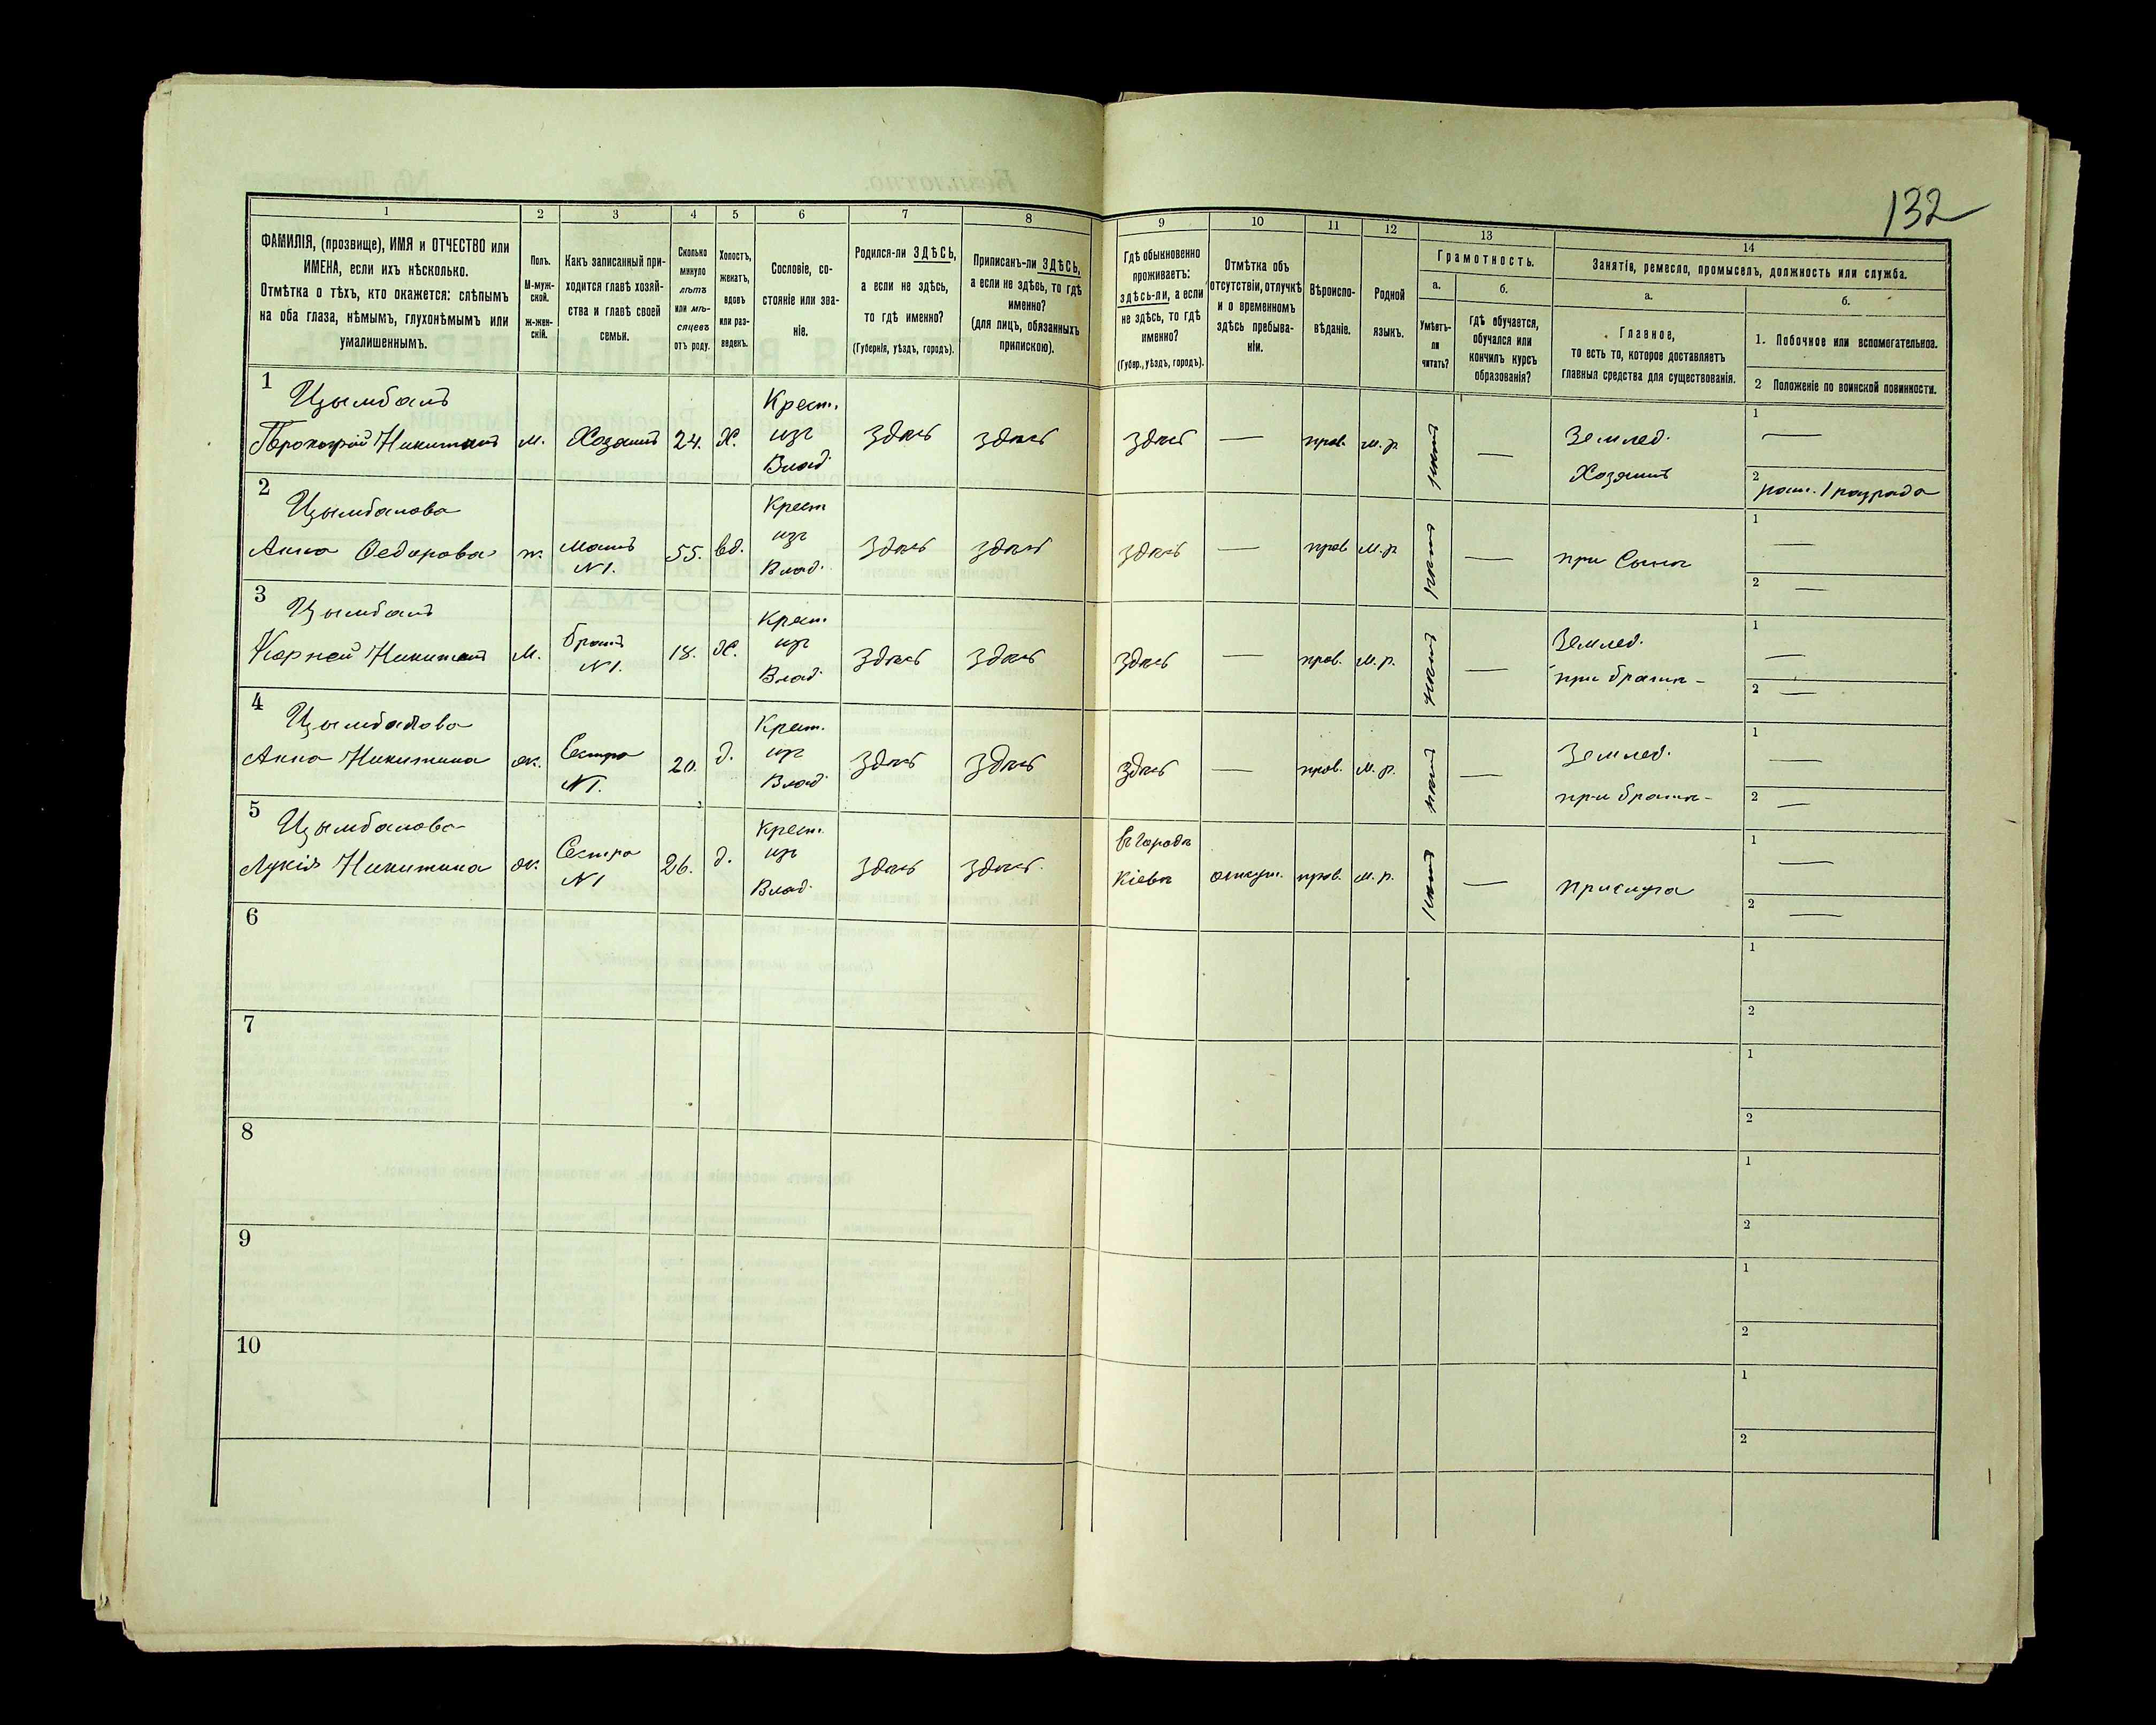 132
1 2 3 4 5 6 7 8 9 10 11 12 13 14
ФАМИЛІЯ, (прозвище), ИМЯ и ОТЧЕСТВО или
ИМЕНА, если ихъ нѣсколько.
Отмѣтка о тѣхъ, кто окажется: слѣпымъ
на оба глаза, нѣмымъ, глухонѣмымъ или
умалишеннымъ.
Полъ.
М-муж-
ской.
Ж-жен-
скій.
Какъ записанный при-
ходится главѣ хозяй-
ства и главѣ своей
семьи.
Сколько
минуло
лѣтъ
или мѣ-
сяцевъ
отъ роду.
Холостъ,
женатъ,
вдовъ
или раз-
веденъ.
Сословіе, со-
стояніе или зва-
ніе.
Родился-ли ЗДѢСЬ,
а если не здѣсь,
то гдѣ именно?
(Губернія, уѣздъ, городъ).
Приписанъ-ли ЗДѢСЬ,
а если не здѣсь, то гдѣ
именно?
(для лицъ, обязанныхъ
припискою).
Гдѣ обыкновенно
проживаетъ:
здѣсь-ли, а если
не здѣсь, то гдѣ
именно?
(Губер., уѣздъ, городъ).
Отмѣтка объ
отсутствіи, отлучкѣ
и о временномъ
здѣсь пребыва-
ніи.
Вѣроиспо-
вѣданіе.
Родной
языкъ.
Грамотность.
а.
Умѣетъ-
ли
читать?
б.
Гдѣ обучается,
обучался или
кончилъ курсъ
образованія?
Занятія, ремесло, промыселъ, должность или служба.
а.
Главное,
то есть то, которое доставляетъ
главныя средства для существованія.
б.
1. Побочное или вспомогательное.
2 Положеніе по воинской повинности.
1 Цымбалъ Крест. 1
Прокофій Никитинъ м. Хозяинъ 24. Х. изъ здѣсь здѣсь здѣсь — прав. м. р. нѣтъ — Землед. —
Влад. Хозяинъ 2 рат. 1 разряда
2 Цымбалова Крест 1
Анна Ѳедорова ж. мать 55. вд. изъ здѣсь здѣсь здѣсь — прав м. р нѣтъ — при сынѣ —
N1. Влад. 2 —
3 Цымбалъ Крест. Землед. 1
Корней Никитинъ М. братъ 18. Х. изъ здѣсь здѣсь здѣсь — прав. м. р. нѣтъ — при братѣ - —
N1. Влад. 2 —
4 Цымбалова Крест. 1
Анна Никитина ж. Сестра 20. д. изъ здѣсь здѣсь здѣсь — прав. м. р. нѣтъ — Землед. —
N1. Влад. при братѣ - 2 —
5 Цымбалова Крест. въ городѣ 1
Лукія Никитина ж. Сестра 26. д. изъ здѣсь здѣсь. Кіевѣ отлуч. прав. м. р. нѣтъ — прислуга —
N1 Влад. 2 —
6 1
2
7 1
2
8 1
2
9 1
2
10 1
2